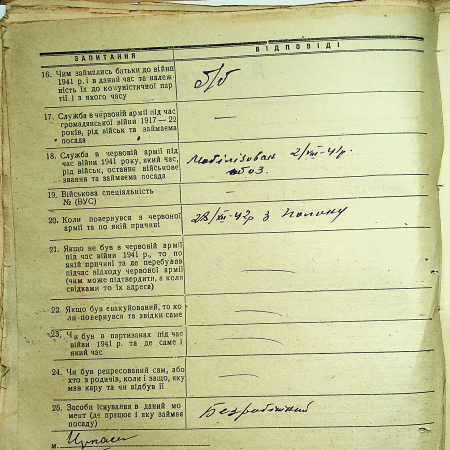 ЗАПИТАННЯ ВІДПОВІДІ
16. Чим займались батьки до війни
1941 р. і в даний час та належ-
ність їх до комуністичної пар-
тії і з якого часу
б/б
17. Служба в червоній армії під час
громадянської війни 1917—22
років, рід військ та займаєма
посада
—
18. Служба в червоній армії під
час війни 1941 року, який час,
рід військ, останнє військове
звання та займаєма посада
Мобілізован 2/VII-41р.
обоз.
19. Військова спеціальність
№ (ВУС)
—
20. Коли повернувся з червоної
армії та по якій причині
з полону
21. Якщо не був в червоній армії
під час війни 1941 р., то по
якій причині та де перебував
підчас відходу червоної армії
(чим може підтвердити, а коли
свідками то їх адреса)
—
22. Якщо був евакуйований, то ко-
ли-повернувся та звідки саме
—
23. Чи був в партизанах під час
війни 1941 р. та де саме і
який час
—
24. Чи був репресований сам, або
хто з родичів, коли і защо, яку
мав кару та чи відбув її
—
25. Засоби існування в даний мо-
мент (де працює і яку займає
посаду)
Безробітний
м. Черкаси